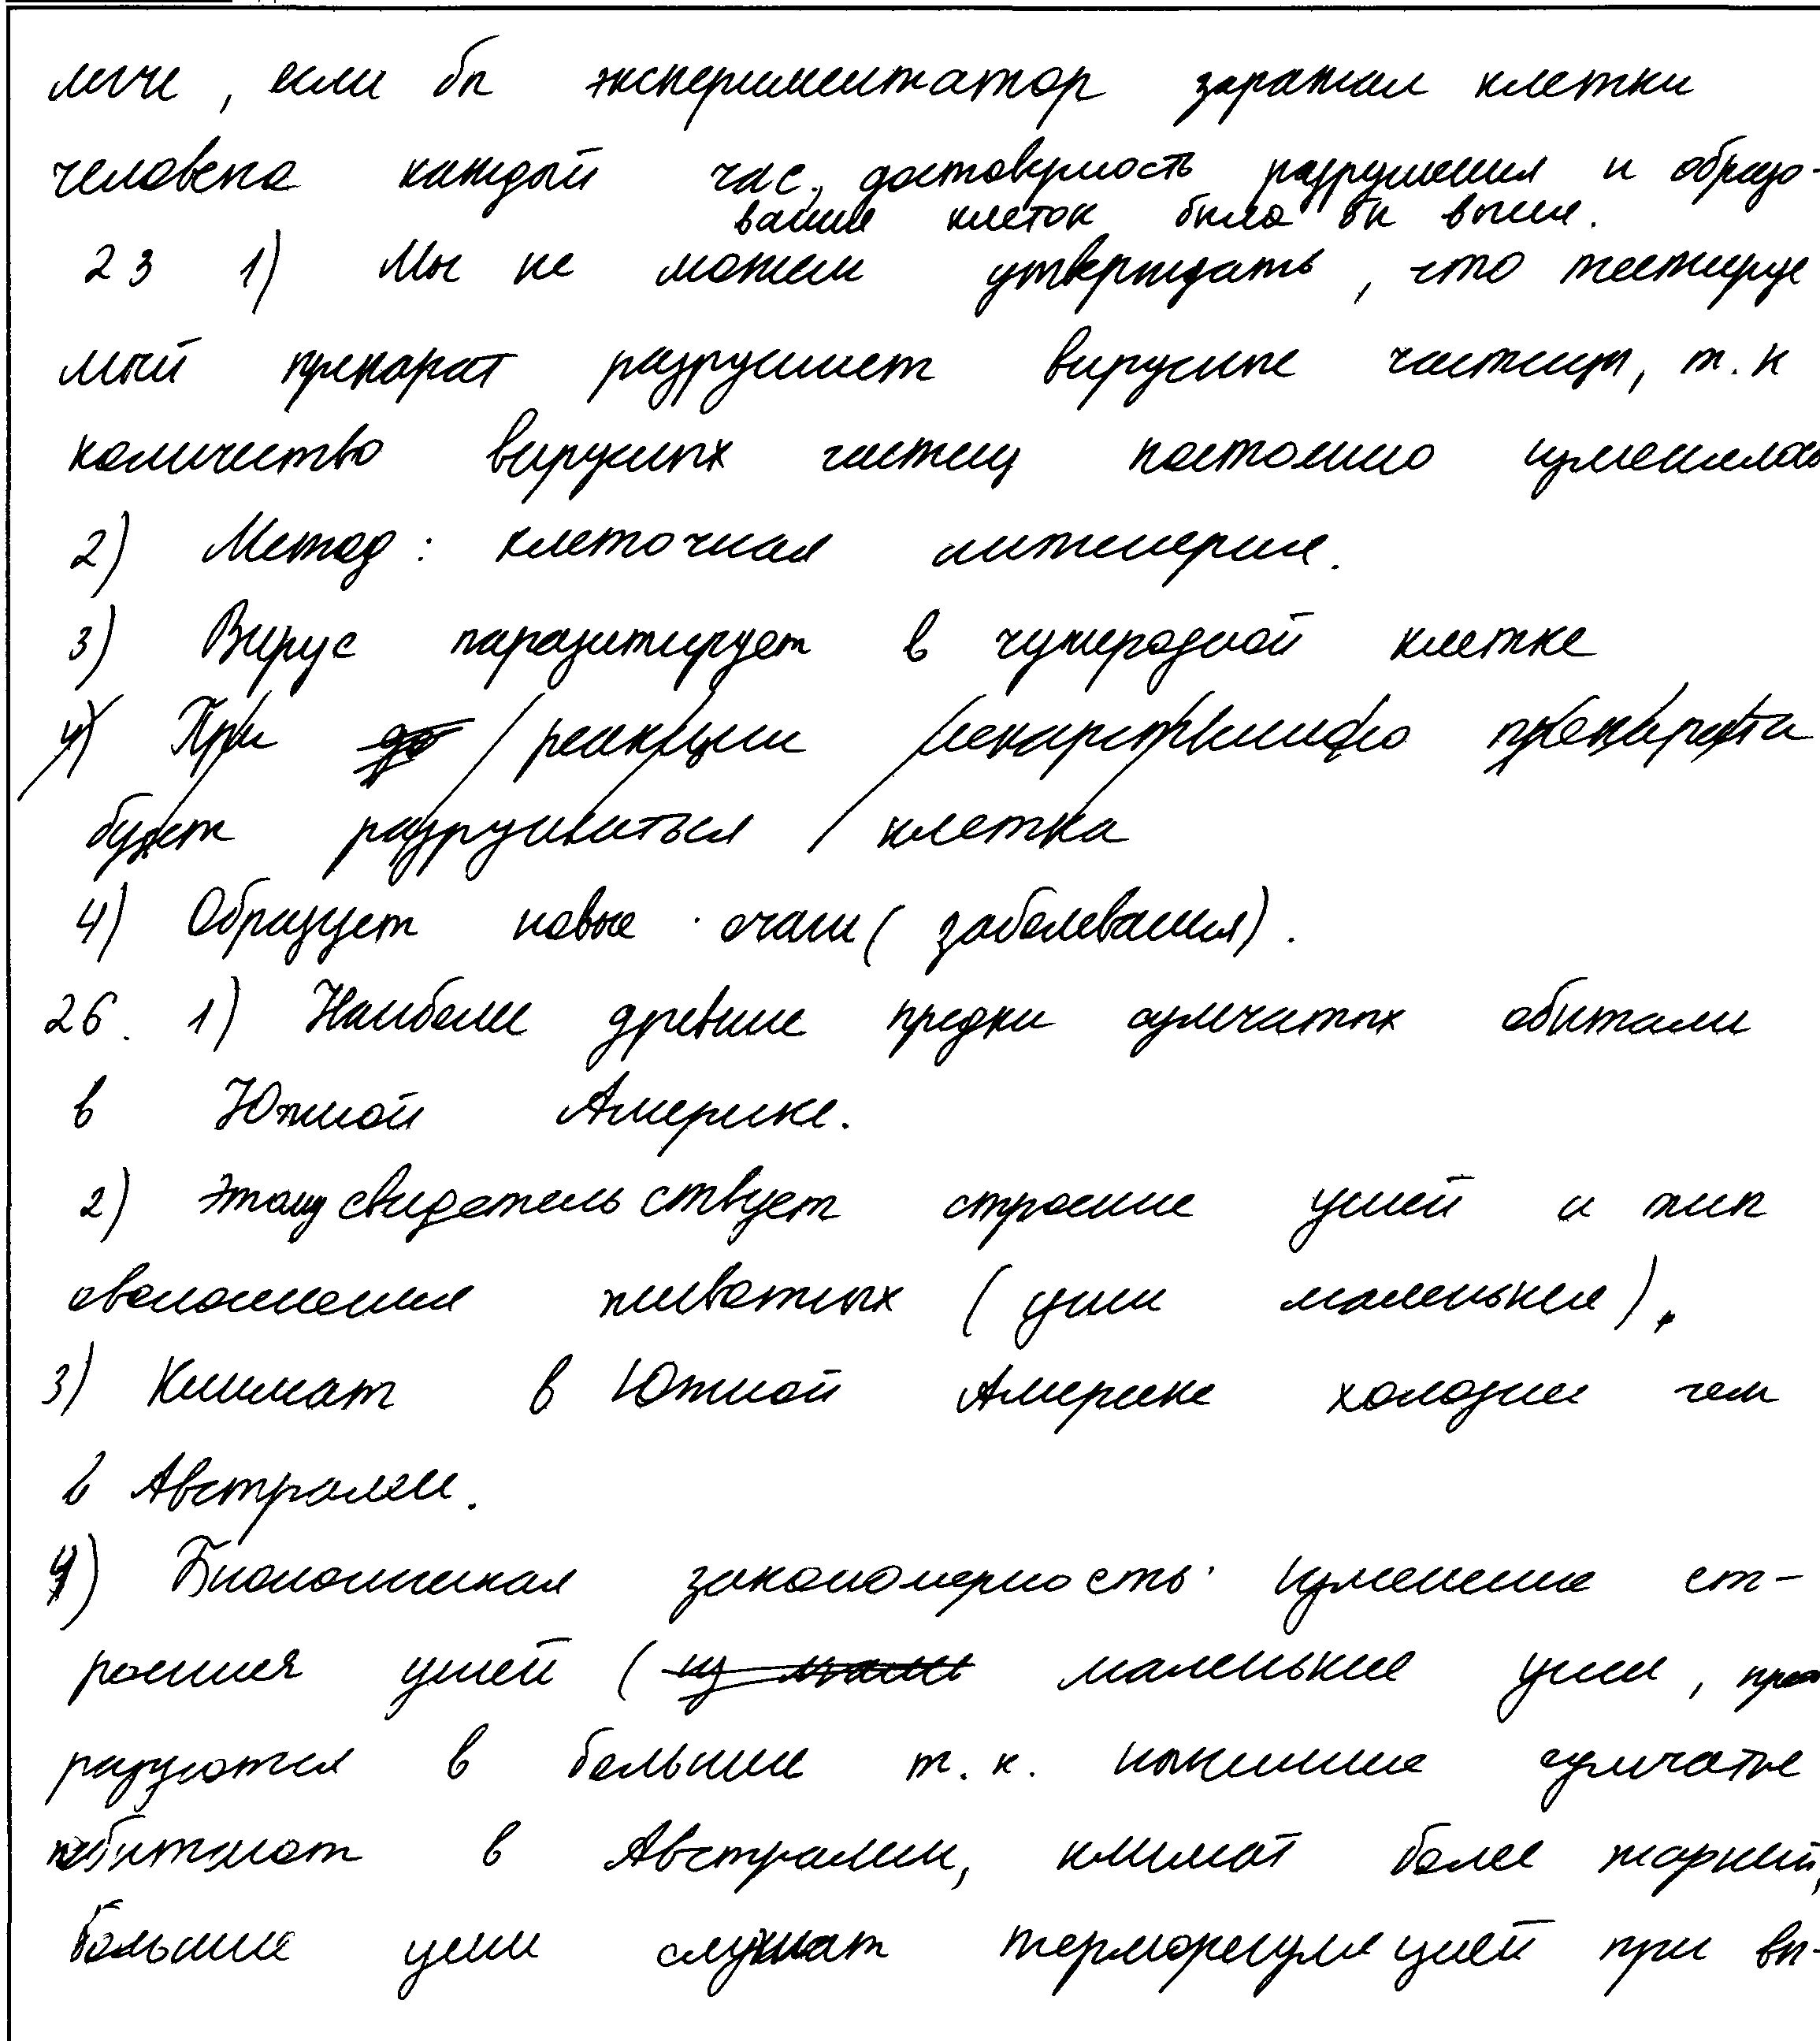 легче, если бы экспериментатор заражал клетки
человека каждый час, достоверность разрушения и образо-
вание клеток была бы выше.
23 1) Мы не можем утверждать, что тестируе
мый препарат разрушает вирусные частицы, т.к
количество вирусных частиц постоянно изменялось
2) Метод: клеточная инженерия.
3) Вирус паразитирует в чужеродной клетке
4) При реакции лекарственного препарата
будет разрушиваться клетка
4) Образует новые очаги (заболевания).
26. 1) Наиболее древние предки сумчатых обитали
в Южной Америке.
2) Этому свидетельствует строение ушей и тип
животных (уши маленькие).
3) Климат в Южной Америке холоднее чем
в Австралии.
4) Биологическая закономерность: изменение ст-
роения ушей (маленькие уши,
разуются в большие т.к. нынешние сумчатые
обитают в Австралии, климат более жаркий,
большие уши служат терморегуляцией при вы-